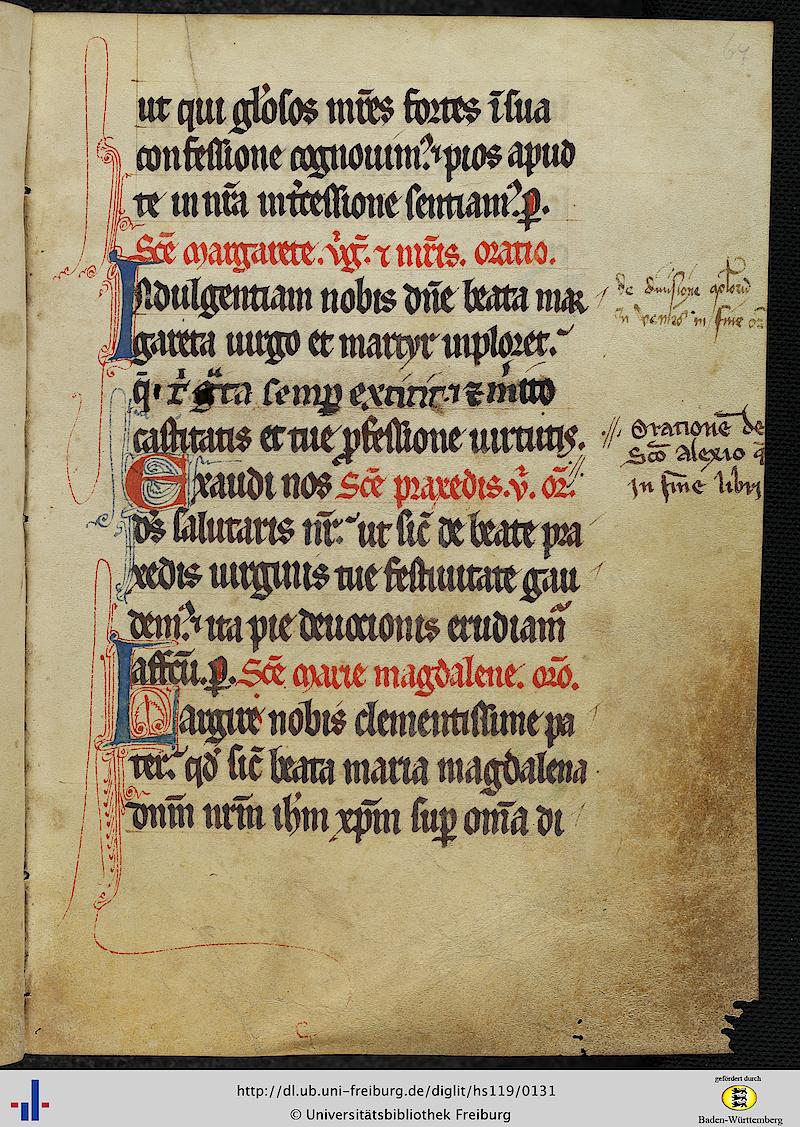 ut qui gl'osos mr̄es fortes ī sua
confessione cognouim᷒ ⁊ pios apud
te in nr̄a int̓cessione sentiam᷒. p̲.
Sc̄e margarete. v̓g̅. ⁊ mr̄is. oratio.
Indulgentiam nobis dn̄e beata mar
gareta uirgo et martyr inploret.
q̄ t̓ gͣta semp̲ extitit ⁊ m̓ito
castitatis et tue ꝓfessione uirtutis.
Exaudi nos Sc̄e praxedis. v̓. or̄.
ds̄ salutaris nr̄. ut sic̄ de beate pra
xedis uirginis tue festiuitate gau
dem᷒. ⁊ ita pie deuocionis erudiam᷒
affc̄u. p̲. Sc̄e marie magdalene. or̄o.
Largire nobis clementissime pa
ter. qd̓ sic̄ beata maria magdalena
dnm̄ nr̄m ih̄m xp̄m sup̲ om̄ia di
de diuisione apl̓orum
in fine
Orationē de
Sc̄o alexio q̄
in fine libri
67
http://dl.ub.uni-freiburg.de/diglit/hs119/0131
© Universitätsbibliothek Freiburg
gefördert durch
Baden-Württemberg